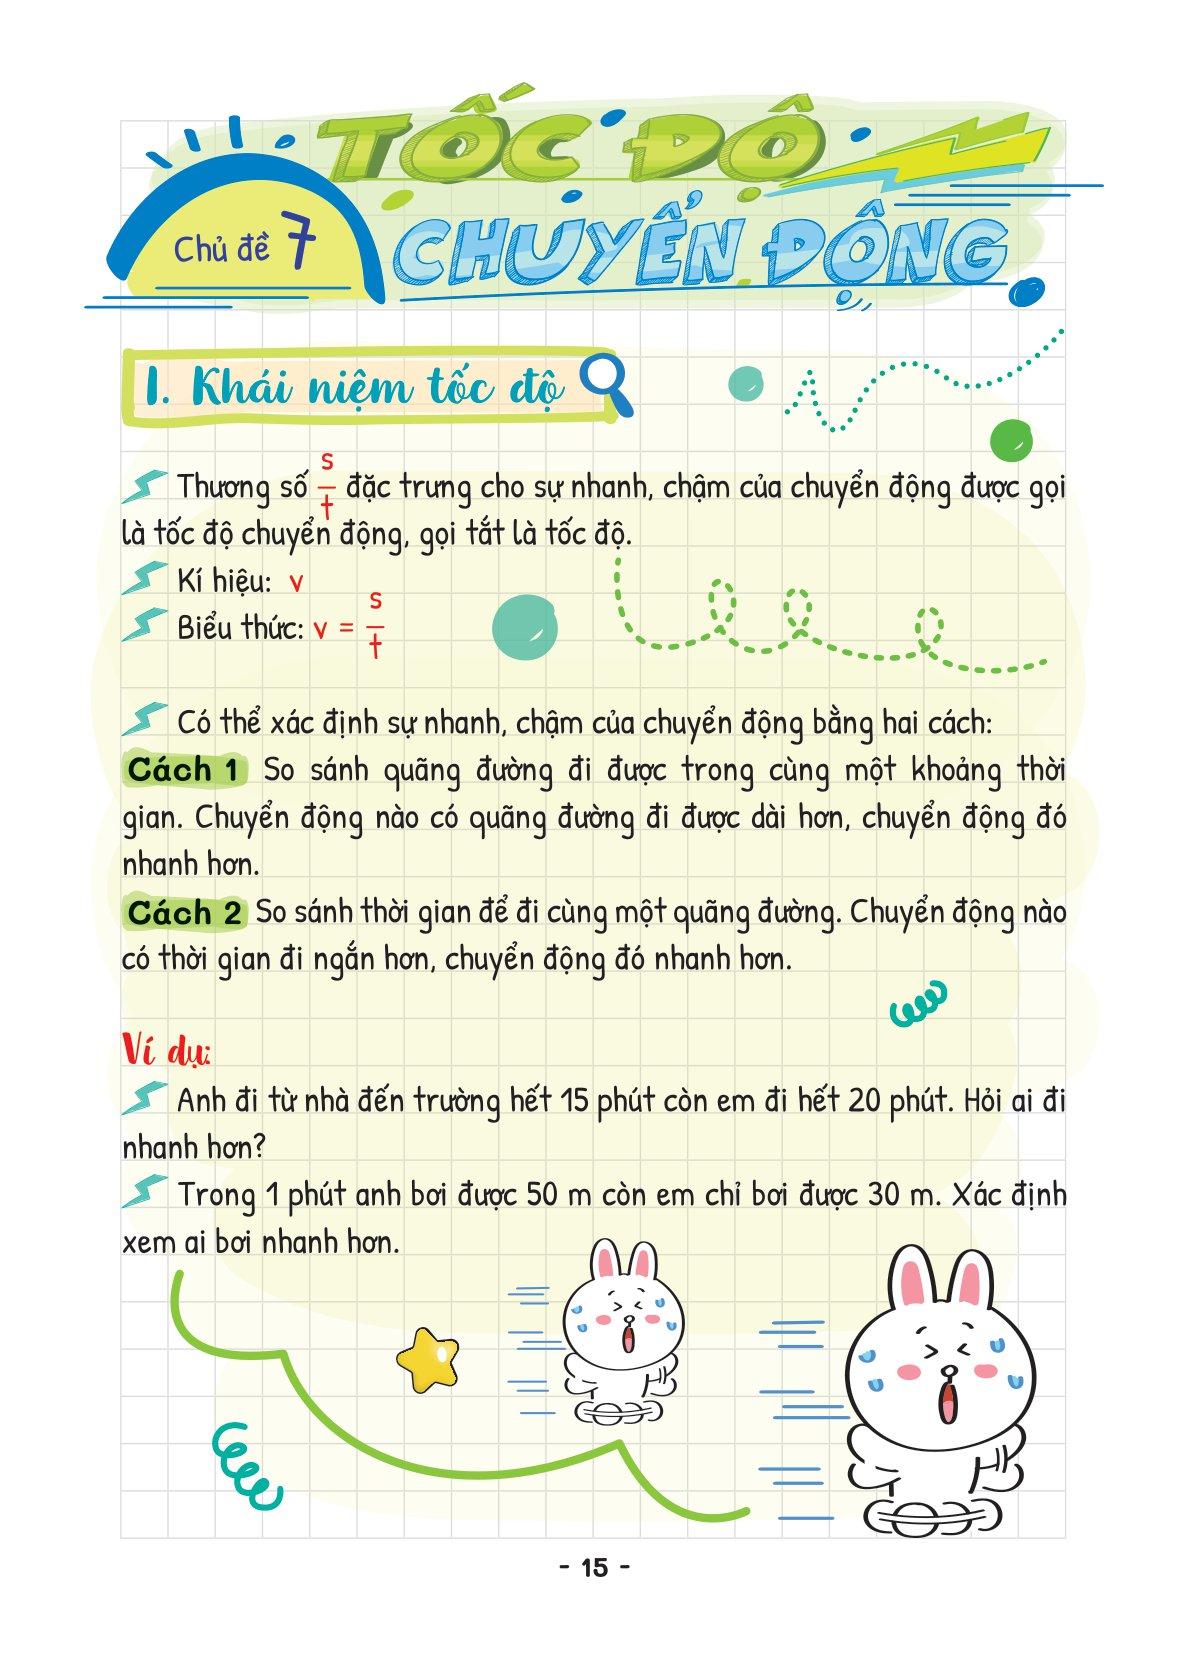 TỐC ĐỘ
Chủ đề 7
CHUYỂN ĐỘNG
I. Khái niệm tốc độ
Thương số s/t đặc trưng cho sự nhanh, chậm của chuyển động được gọi
là tốc độ chuyển động, gọi tắt là tốc độ.
Kí hiệu: v
Biểu thức: v = s/t
Có thể xác định sự nhanh, chậm của chuyển động bằng hai cách:
Cách 1 So sánh quãng đường đi được trong cùng một khoảng thời
gian. Chuyển động nào có quãng đường đi được dài hơn, chuyển động đó
nhanh hơn.
Cách 2 So sánh thời gian để đi cùng một quãng đường. Chuyển động nào
có thời gian đi ngắn hơn, chuyển động đó nhanh hơn.
Ví dụ:
Anh đi từ nhà đến trường hết 15 phút còn em đi hết 20 phút. Hỏi ai đi
nhanh hơn?
Trong 1 phút anh bơi được 50 m còn em chỉ bơi được 30 m. Xác định
xem ai bơi nhanh hơn.
- 15 -